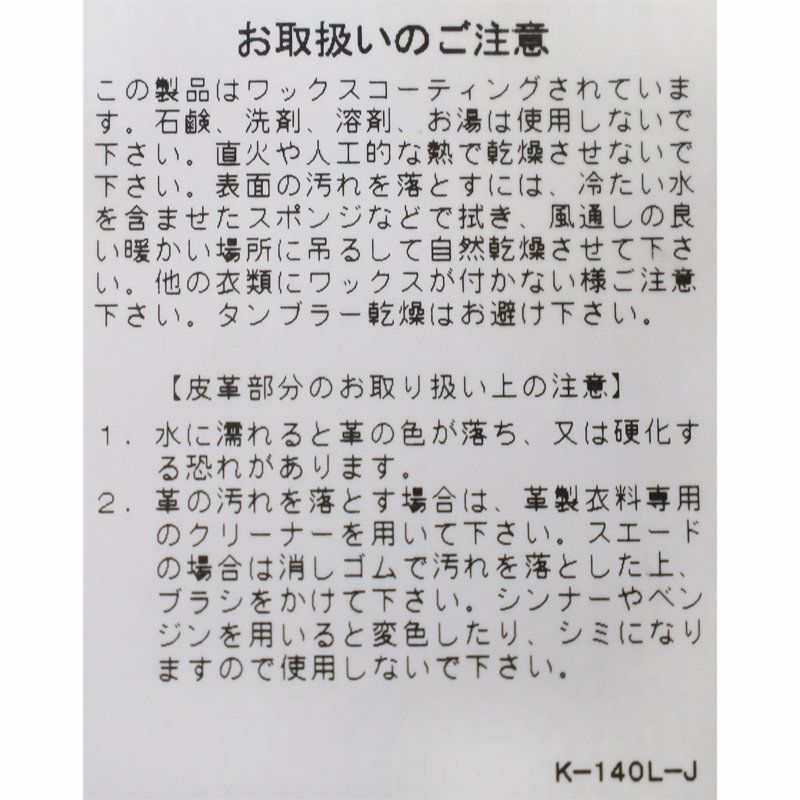 お取扱いのご注意
この製品はワックスコーティングされていま
す。石鹸、洗剤、溶剤、お湯は使用しないで
下さい。直火や人工的な熱で乾燥させないで
下さい。表面の汚れを落とすには、冷たい水
を含ませたスポンジなどで拭き、風通しの良
い暖かい場所に吊るして自然乾燥させて下さ
い。他の衣類にワックスが付かない様ご注意
下さい。タンブラー乾燥はお避け下さい。
【皮革部分のお取り扱い上の注意】
1. 水に濡れると革の色が落ち、又は硬化す
る恐れがあります。
2. 革の汚れを落とす場合は、革製衣料専用
のクリーナーを用いて下さい。スエード
の場合は消しゴムで汚れを落とした上、
ブラシをかけて下さい。シンナーやベン
ジンを用いると変色したり、シミになり
ますので使用しないで下さい。
K-140L-J